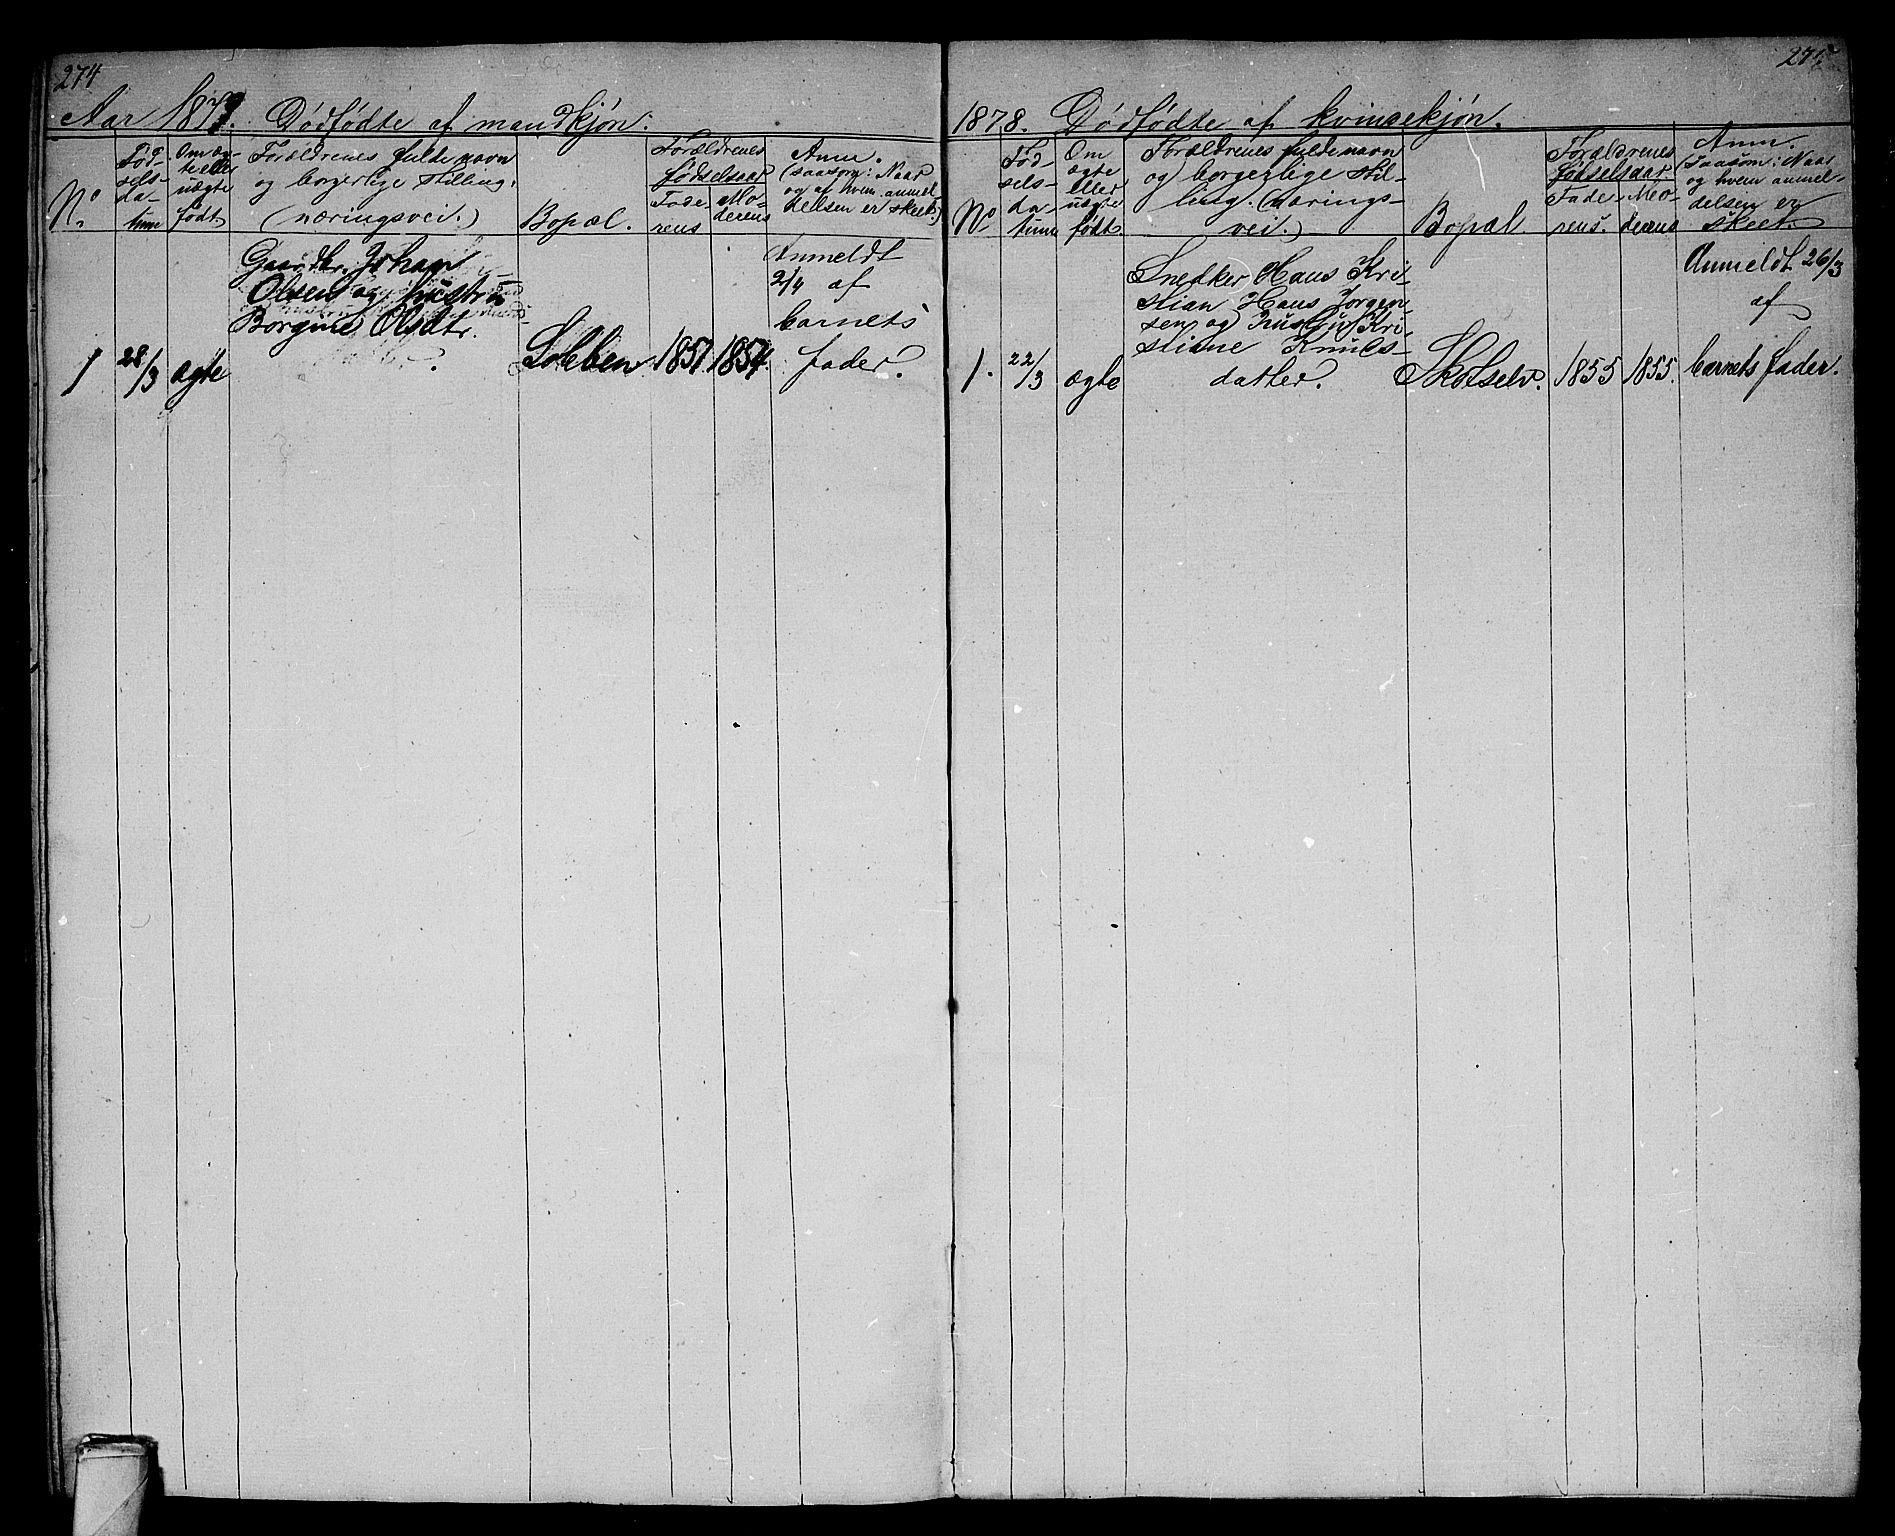 274
Aar 1879. Dødfødte af mandkjøn.
No
Fød-
sels-
da-
tum
Om æg-
te eller
uægte
født
Forældrenes fulde navn
og borgerlige stilling.
(næringsvei.)
Bopæl.
Forældrenes
fødselsaar
Fade-
rens
Mo-
derens
Anm.
(saasom: Naar
og af hvem anmel-
delsen er skeet.)
1
28/3
ægte
Gaardbr. Johan
Olsen og hustru
Borgine Olsdtr.
1851
1854.
Anmeldt
2/4 af
barnets
fader.
275
1878. Dødfødte af kvindekjøn.
No
Fød-
sels-
da-
tum
Om
ægte
eller
uægte
født.
Forældrenes fulde navn
og borgerlige stil-
ling. (nærings-
vei.)
Bopæl
Forældrenes
fødselsaar.
Fade-
rens.
Mo-
derens
Anm.
(saasom: Naar
og hvem anmel-
delsen er
skeet.
1.
22/3
ægte
Snedker Hans Kri-
stian Hans Jørgen
sen og Hustru Kri-
stiane Knuds-
datter.
Skotselv.
1855
1855.
Anmeldt 26/3
af
barnets fader.